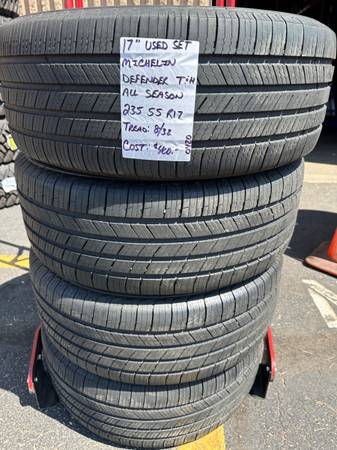 17" USED SET
MICHELIN
DEFENDER T+H
ALL SEASON
235 55 R17
TREAD: 8/32
COST: $400.-